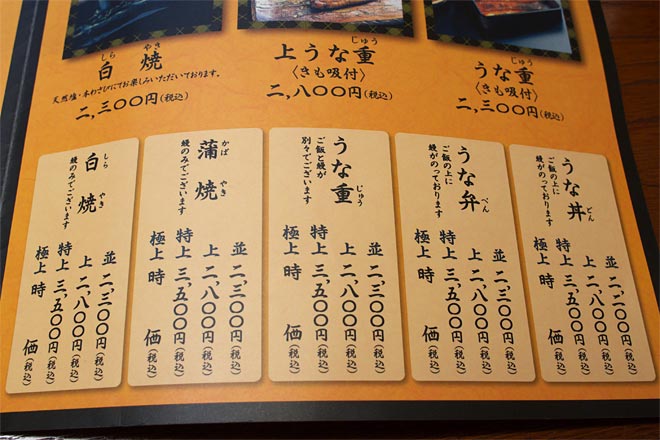 上うな重
じゅう
〈きも吸付〉
二,八〇〇円(税込)
うな重
じゅう
〈きも吸付〉
二,三〇〇円(税込)
白焼
しら やき
天然塩・本わさびにてお楽しみいただいております。
二,三〇〇円(税込)
うな丼
どん
ご飯の上に
鰻がのっております
並 二,二〇〇円(税込)
上 二,八〇〇円(税込)
特上 三,五〇〇円(税込)
極上 時価(税込)
うな弁
べん
ご飯の上に
鰻がのっております
並 二,三〇〇円(税込)
上 二,八〇〇円(税込)
特上 三,五〇〇円(税込)
極上 時価(税込)
うな重
じゅう
ご飯と鰻が
別々でございます
並 二,三〇〇円(税込)
上 二,八〇〇円(税込)
特上 三,五〇〇円(税込)
極上 時価(税込)
蒲焼
かば やき
鰻のみでございます
並 二,三〇〇円(税込)
上 二,八〇〇円(税込)
特上 三,五〇〇円(税込)
極上 時価(税込)
白焼
しら やき
鰻のみでございます
並 二,三〇〇円(税込)
上 二,八〇〇円(税込)
特上 三,五〇〇円(税込)
極上 時価(税込)